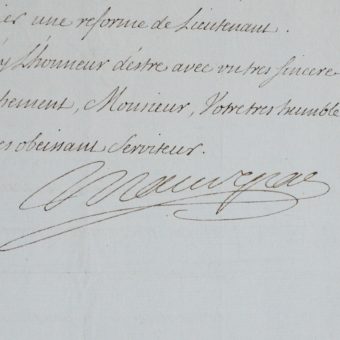 une reforme de Lieutenant.
y L'honneur d'estre avec un tres sincere
chement, Monsieur, Votre tres humble
es obeissant Serviteur.